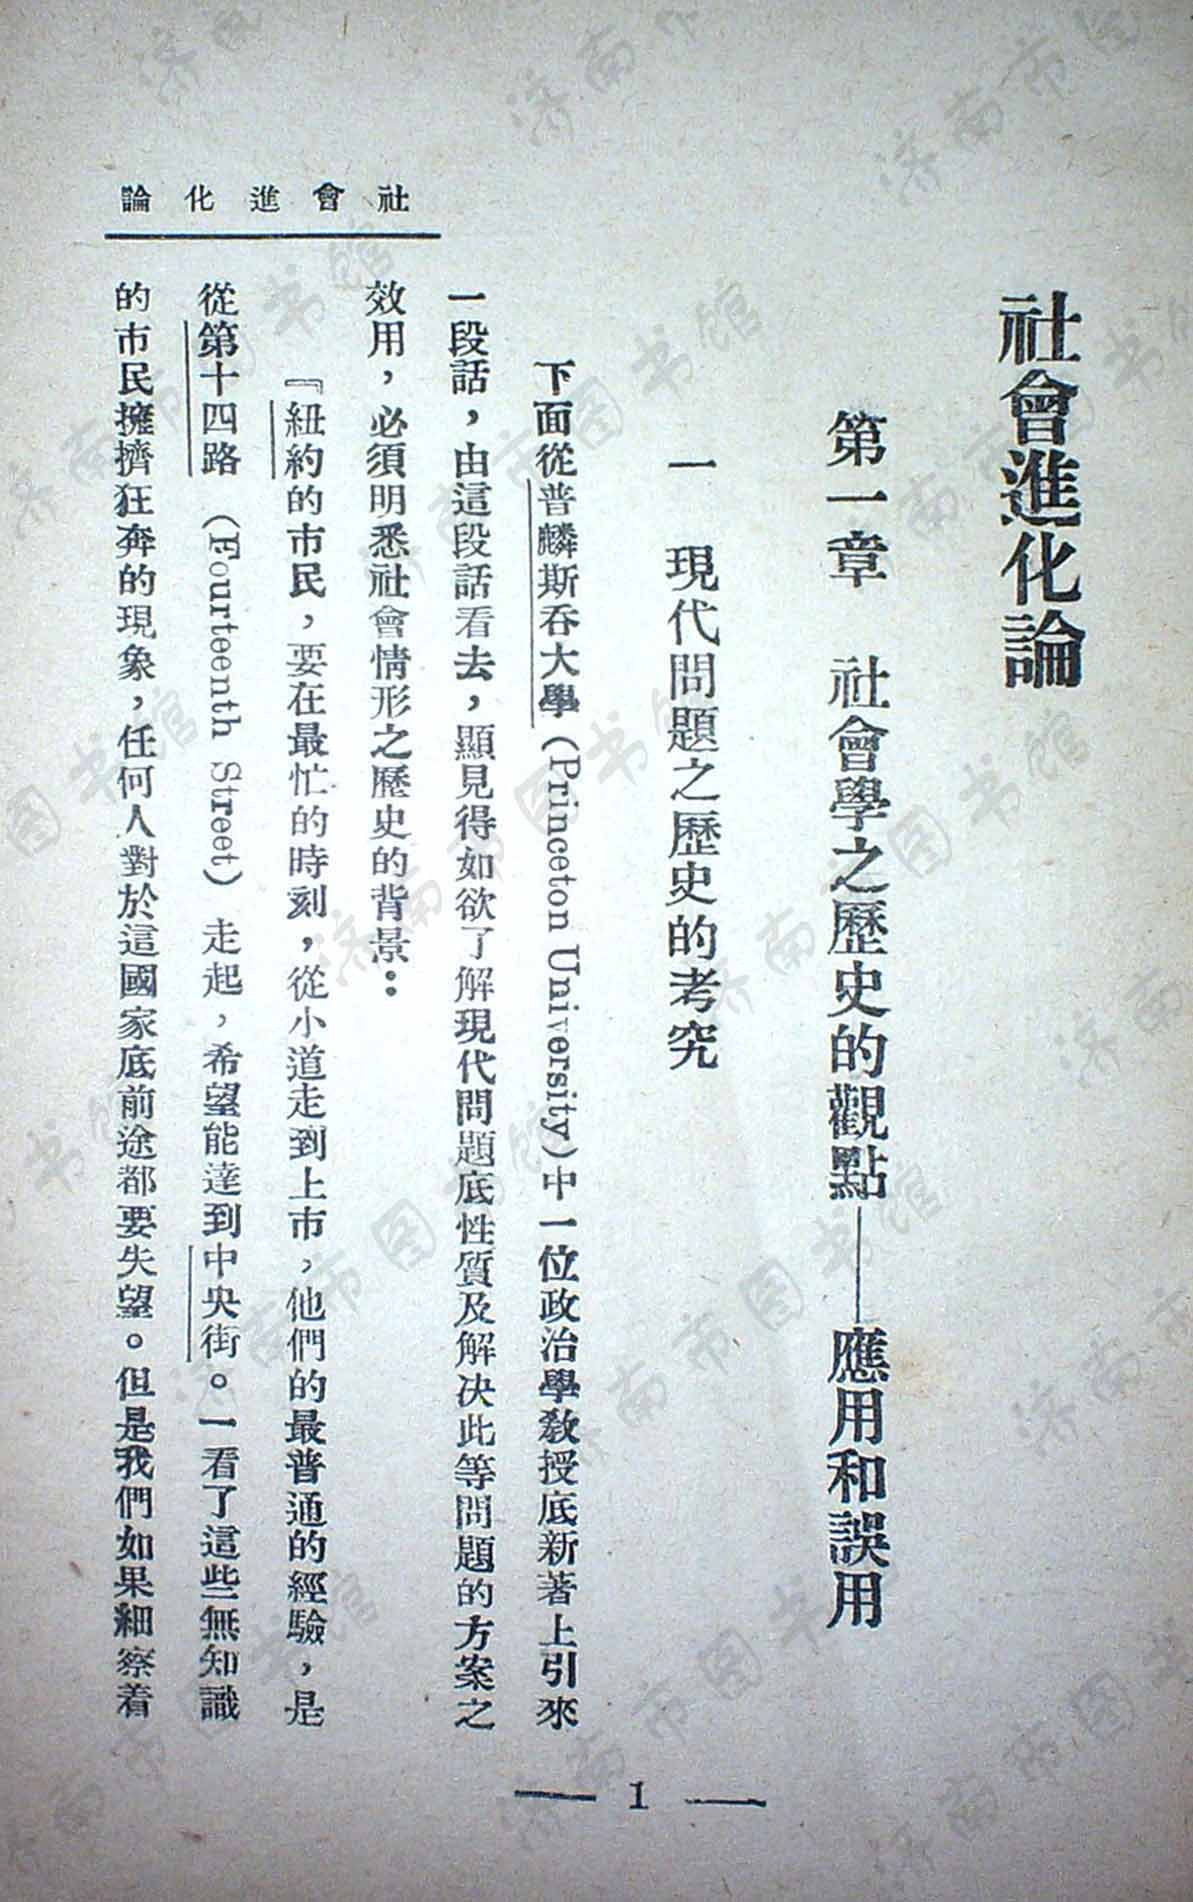 社會進化論
第一章　社會學之歷史的觀點——應用和誤用
一　現代問題之歷史的考究
下面從普麟斯吞大學(Princeton University)中一位政治學教授底新著上引來
一段話，由這段話看去，顯見得如欲了解現代問題底性質及解決此等問題的方案之
效用，必須明悉社會情形之歷史的背景：
『紐約的市民，要在最忙的時刻，從小道走到上市，他們的最普通的經驗，是
從第十四路（Fourteenth Street）走起，希望能達到中央街。一看了這些無知識
的市民擁擠狂奔的現象，任何人對於這國家底前途都要失望。但是我們如果細察着
社會進化論
— 1 —
济南市图书馆